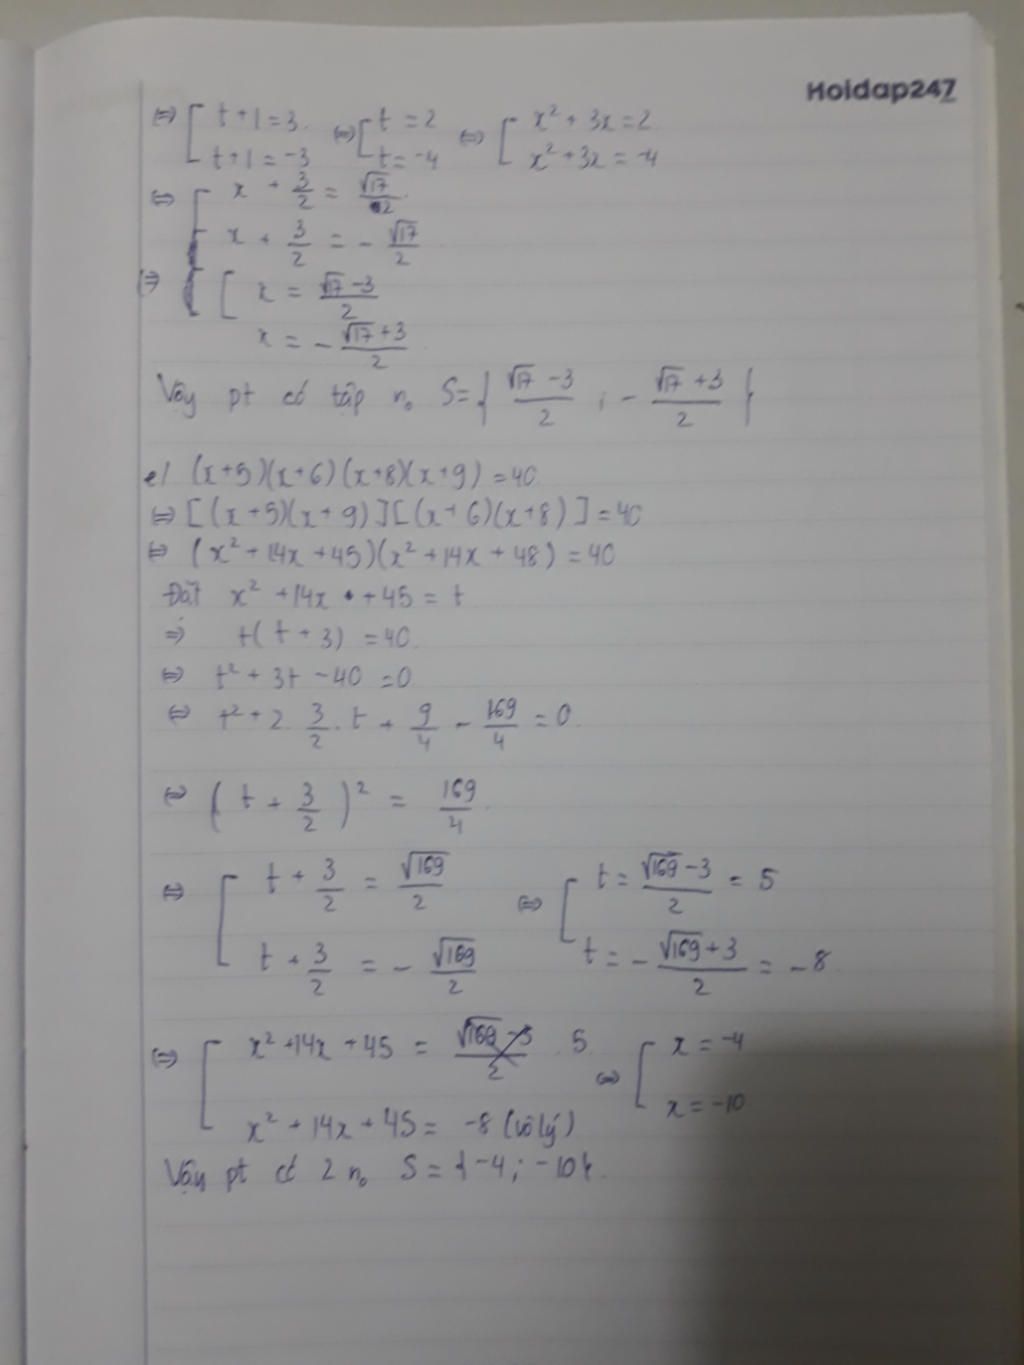 Hoidap247
⇔ [ t + 1 = 3 ⇔ [ t = 2 ⇔ [ x² + 3x = 2
t + 1 = -3 t = -4 x² + 3x = -4
⇔ [ x + 3/2 = √17/2
x + 3/2 = - √17/2
⇔ [ x = (√17 - 3)/2
x = - (√17 + 3)/2
Vậy pt có tập n₀ S = { (√17 - 3)/2 ; - (√17 + 3)/2 }
e/ (x+5)(x+6)(x+8)(x+9) = 40
⇔ [(x+5)(x+9)][(x+6)(x+8)] = 40
⇔ (x² + 14x + 45)(x² + 14x + 48) = 40
Đặt x² + 14x + 45 = t
⇒ t(t + 3) = 40
⇔ t² + 3t - 40 = 0
⇔ t² + 2. 3/2 . t + 9/4 - 169/4 = 0
⇔ (t + 3/2)² = 169/4
⇔ [ t + 3/2 = √169/2 ⇔ [ t = (√169 - 3)/2 = 5
t + 3/2 = - √169/2 t = - (√169 + 3)/2 = -8
⇔ [ x² + 14x + 45 = 5 ⇔ [ x = -4
x² + 14x + 45 = -8 (vô lý) x = -10
Vậy pt có 2 n₀ S = {-4 ; -10}.